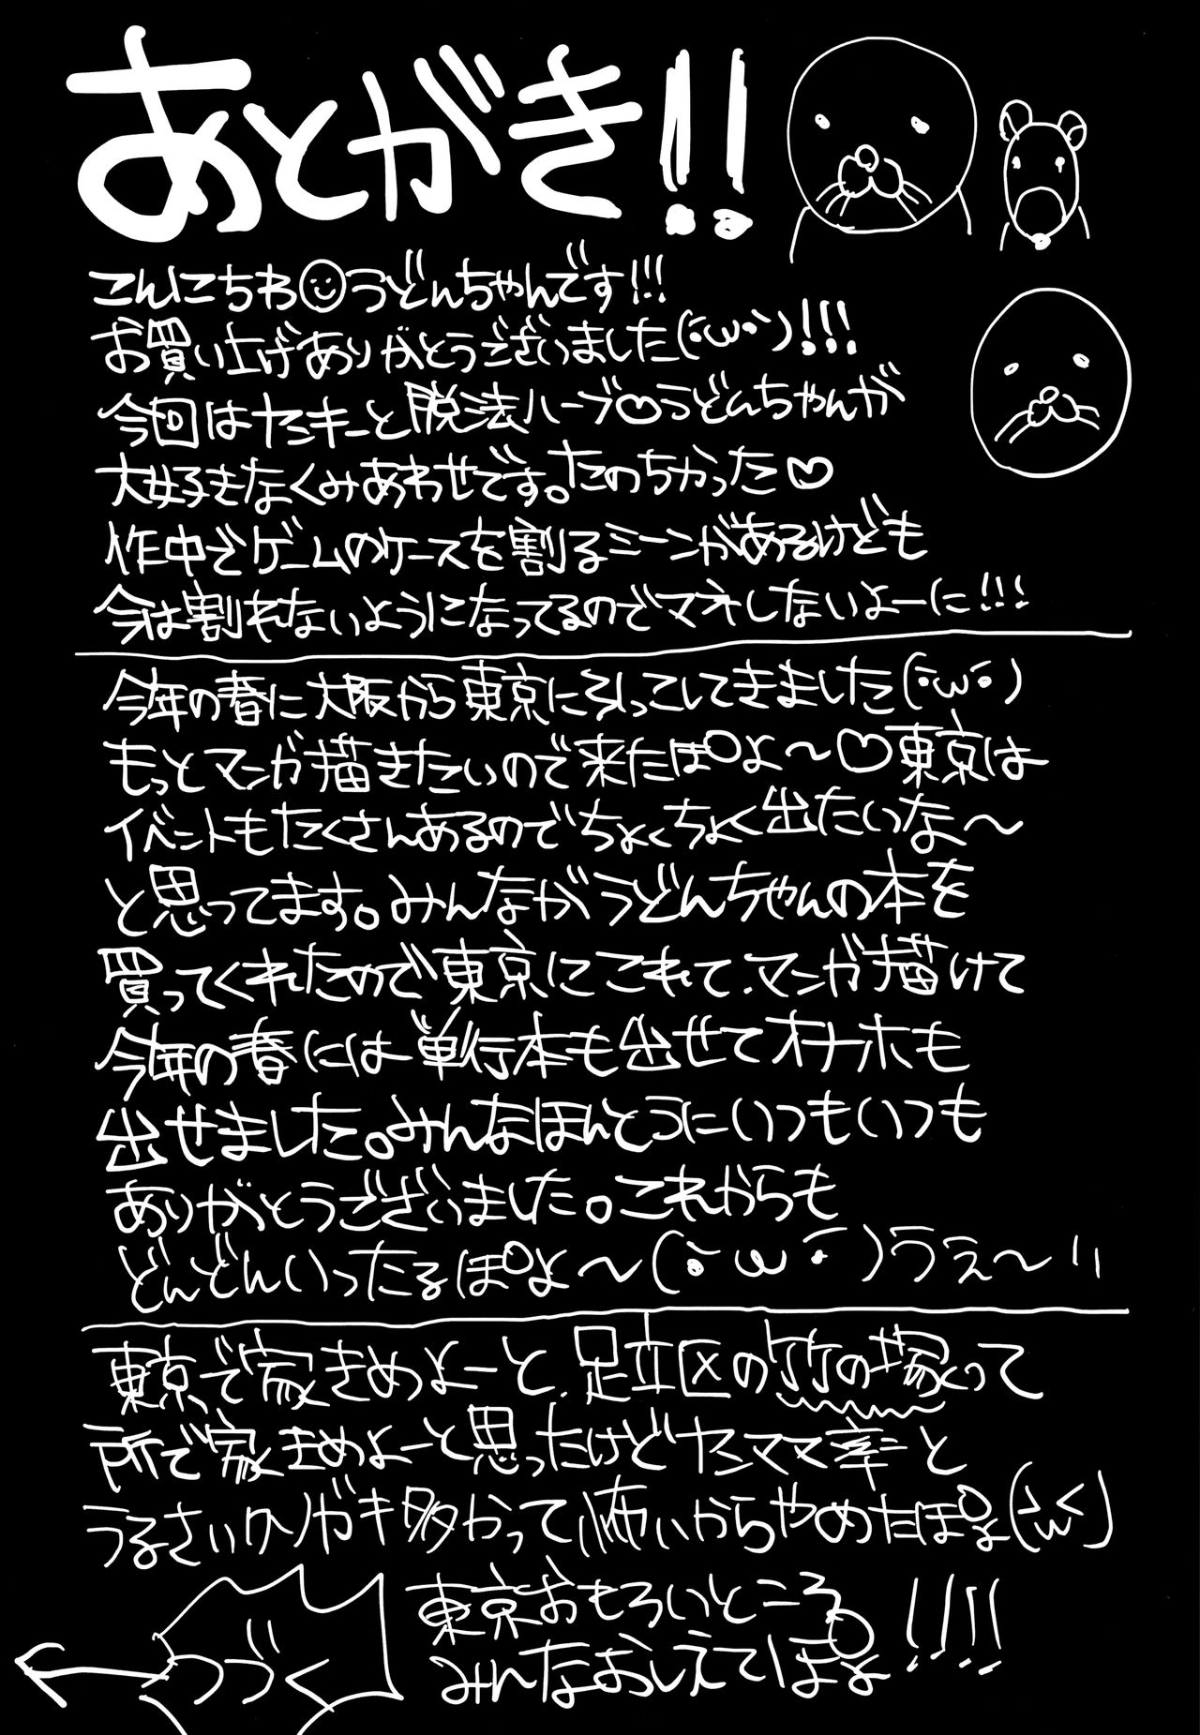 あとがき!!
こんにちわ☺うどんちゃんです!!!
お買い上げありがとうございました(・ω・`)!!!
今回はヤンキーと脱法ハーブ♡うどんちゃんが
大好きなくみあわせです。たのちかった♡
作中でゲームのケースを割るシーンがあるけども
今は割れないようになってるのでマネしないよーに!!!
今年の春に大阪から東京に引っこしてきました(・ω・)
もっとマンガ描きたいので来たぽよ〜♡東京は
イベントもたくさんあるのでちょくちょく出たいな〜
と思ってます。みんながうどんちゃんの本を
買ってくれたので東京にこれて、マンガ描けて
今年の春には単行本も出せてオナホも
出せました。みんなほんとうにいつもいつも
ありがとうございました。これからも
どんどんいったるぽよ〜(・ω・)うぇ〜!!
東京で家きめよーと、足立区の竹の塚って
所で家きめよーと思ったけどヤンママ率と
うるさいクソガキ多かって怖いからやめたぽよ(・ω<)
東京おもろいところ
みんなおしえてぽよ!!!!
つづく